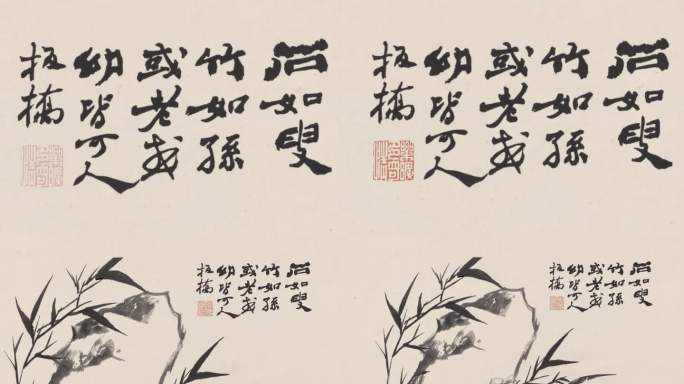 石如叟
竹如孫
或老或
幼皆可人
板橋
石如叟
竹如孫
或老或
幼皆可人
板橋
石如叟
竹如孫
或老或
幼皆可人
板橋
石如叟
竹如孫
或老或
幼皆可人
板橋